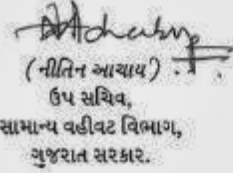 (નીતિન આચાર્ય)
ઉપ સચિવ,
સામાન્ય વહીવટ વિભાગ,
ગુજરાત સરકાર.